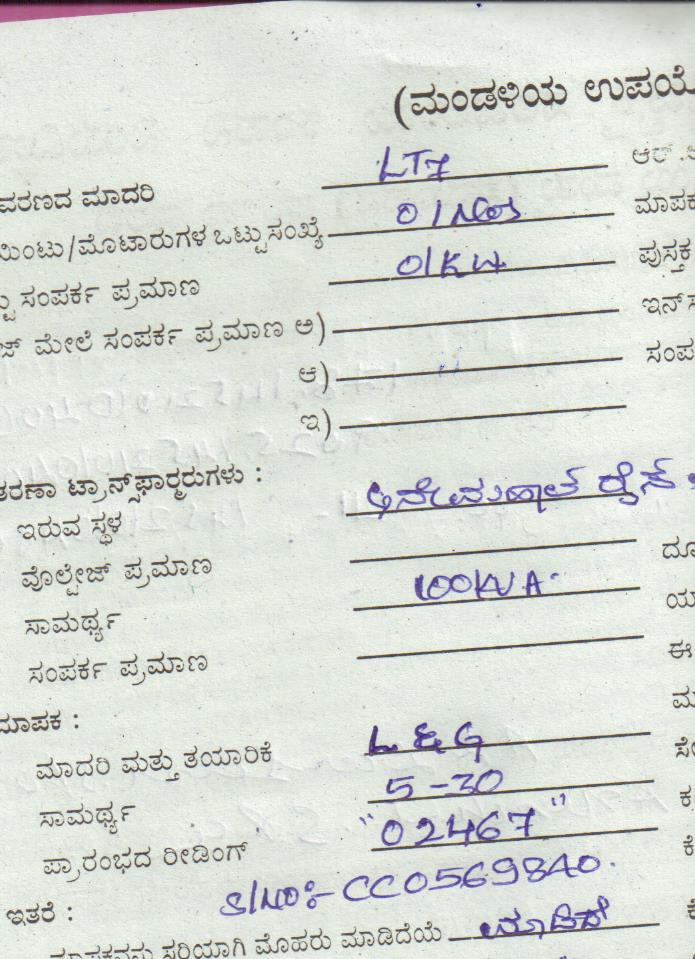 (ಮಂಡಳಿಯ ಉಪಯೋ
ವರಣದ ಮಾದರಿ LT7 ಆರ್.
ಮಿಂಟು/ಮೊಟಾರುಗಳ ಒಟ್ಟು ಸಂಖ್ಯೆ 01Nos ಮಾಪಕ
ಟ್ಟು ಸಂಪರ್ಕ ಪ್ರಮಾಣ 01KW ಪುಸ್ತಕ
ಜ್ ಮೇಲೆ ಸಂಪರ್ಕ ಪ್ರಮಾಣ ಅ) ಇನ್ಸ
ಆ) ಸಂಪ
ಇ)
ತರಣಾ ಟ್ರಾನ್ಸ್‌ಫಾರ್ಮರುಗಳು :
ಇರುವ ಸ್ಥಳ ರೈಸ್
ವೊಲ್ಟೇಜ್ ಪ್ರಮಾಣ ದೂ
ಸಾಮರ್ಥ್ಯ 100KVA. ಯ
ಸಂಪರ್ಕ ಪ್ರಮಾಣ ಈ
ಮಾಪಕ : ಮ
ಮಾದರಿ ಮತ್ತು ತಯಾರಿಕೆ L & G ಸೇ
ಸಾಮರ್ಥ್ಯ 5-30 ಕ್ರ
ಪ್ರಾರಂಭದ ರೀಡಿಂಗ್ "02467" ಕೇ
S/NO:- CC0569840.
ಇತರೆ :
ಮಾಪಕವನ್ನು ಸರಿಯಾಗಿ ಮೊಹರು ಮಾಡಿದೆಯೆ ಮಾಡಿದೆ